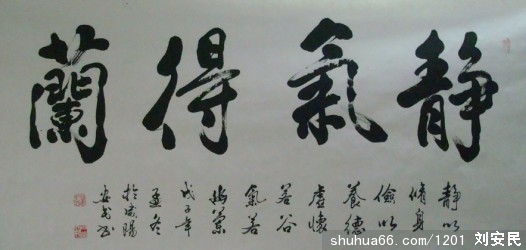 静氣得蘭
静以
脩身
儉以
養德
虛懷
若谷
氣若
幽蘭
戊子年
冬
於咸陽
安民書
shuhua66.com/1201 刘安民